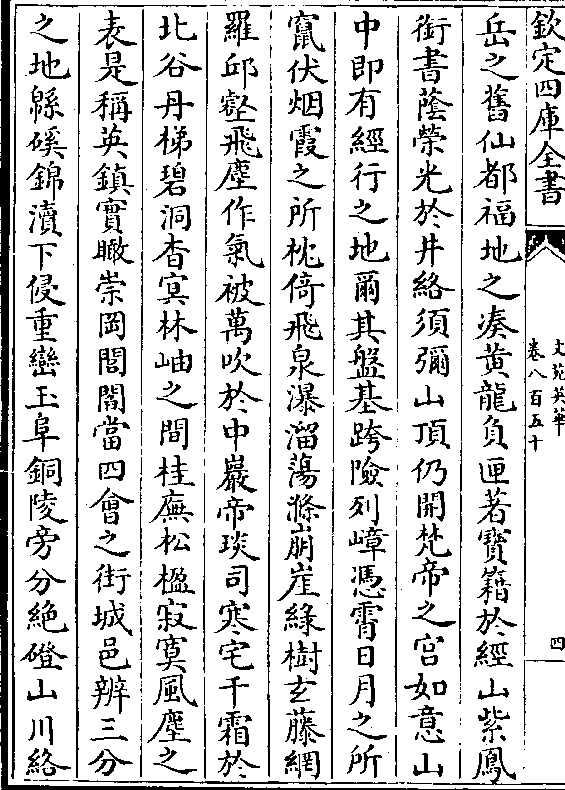 欽定四庫全書
文苑英華
卷八百五十
四
岳之舊仙都福地之湊黄龍負匣著寳籍於經山紫鳳
銜書蔭榮光於井絡須彌山頂仍開梵帝之宫如意山
中即有經行之地爾其盤基跨險列嶂憑霄日月之所
竄伏烟霞之所枕倚飛泉瀑溜蕩滌崩崖緑樹玄藤網
羅邱壑飛塵作氣被萬吹於中巖帝琰司寒宅千霜於
北谷丹梯碧洞杳㝠林岫之間桂廡松楹寂寞風塵之
表是稱英鎮實瞰崇岡閭闠當四會之街城邑辨三分
之地緜磎錦瀆下侵重巒玉阜銅陵旁分絶磴山川絡